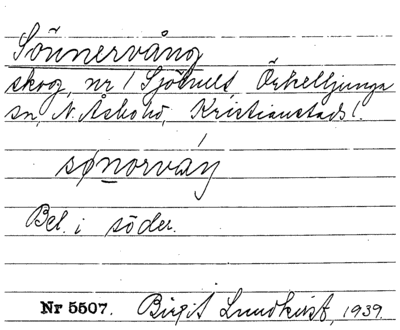 Sönnervång
skog, nr 1 Sjöhult, Örkelljunga
sn, N. Åsbo hd, Kristianstads l.
sønorváŋ
Bel. i söder.
Nr 5507. Birgit Lundkvist, 1939.